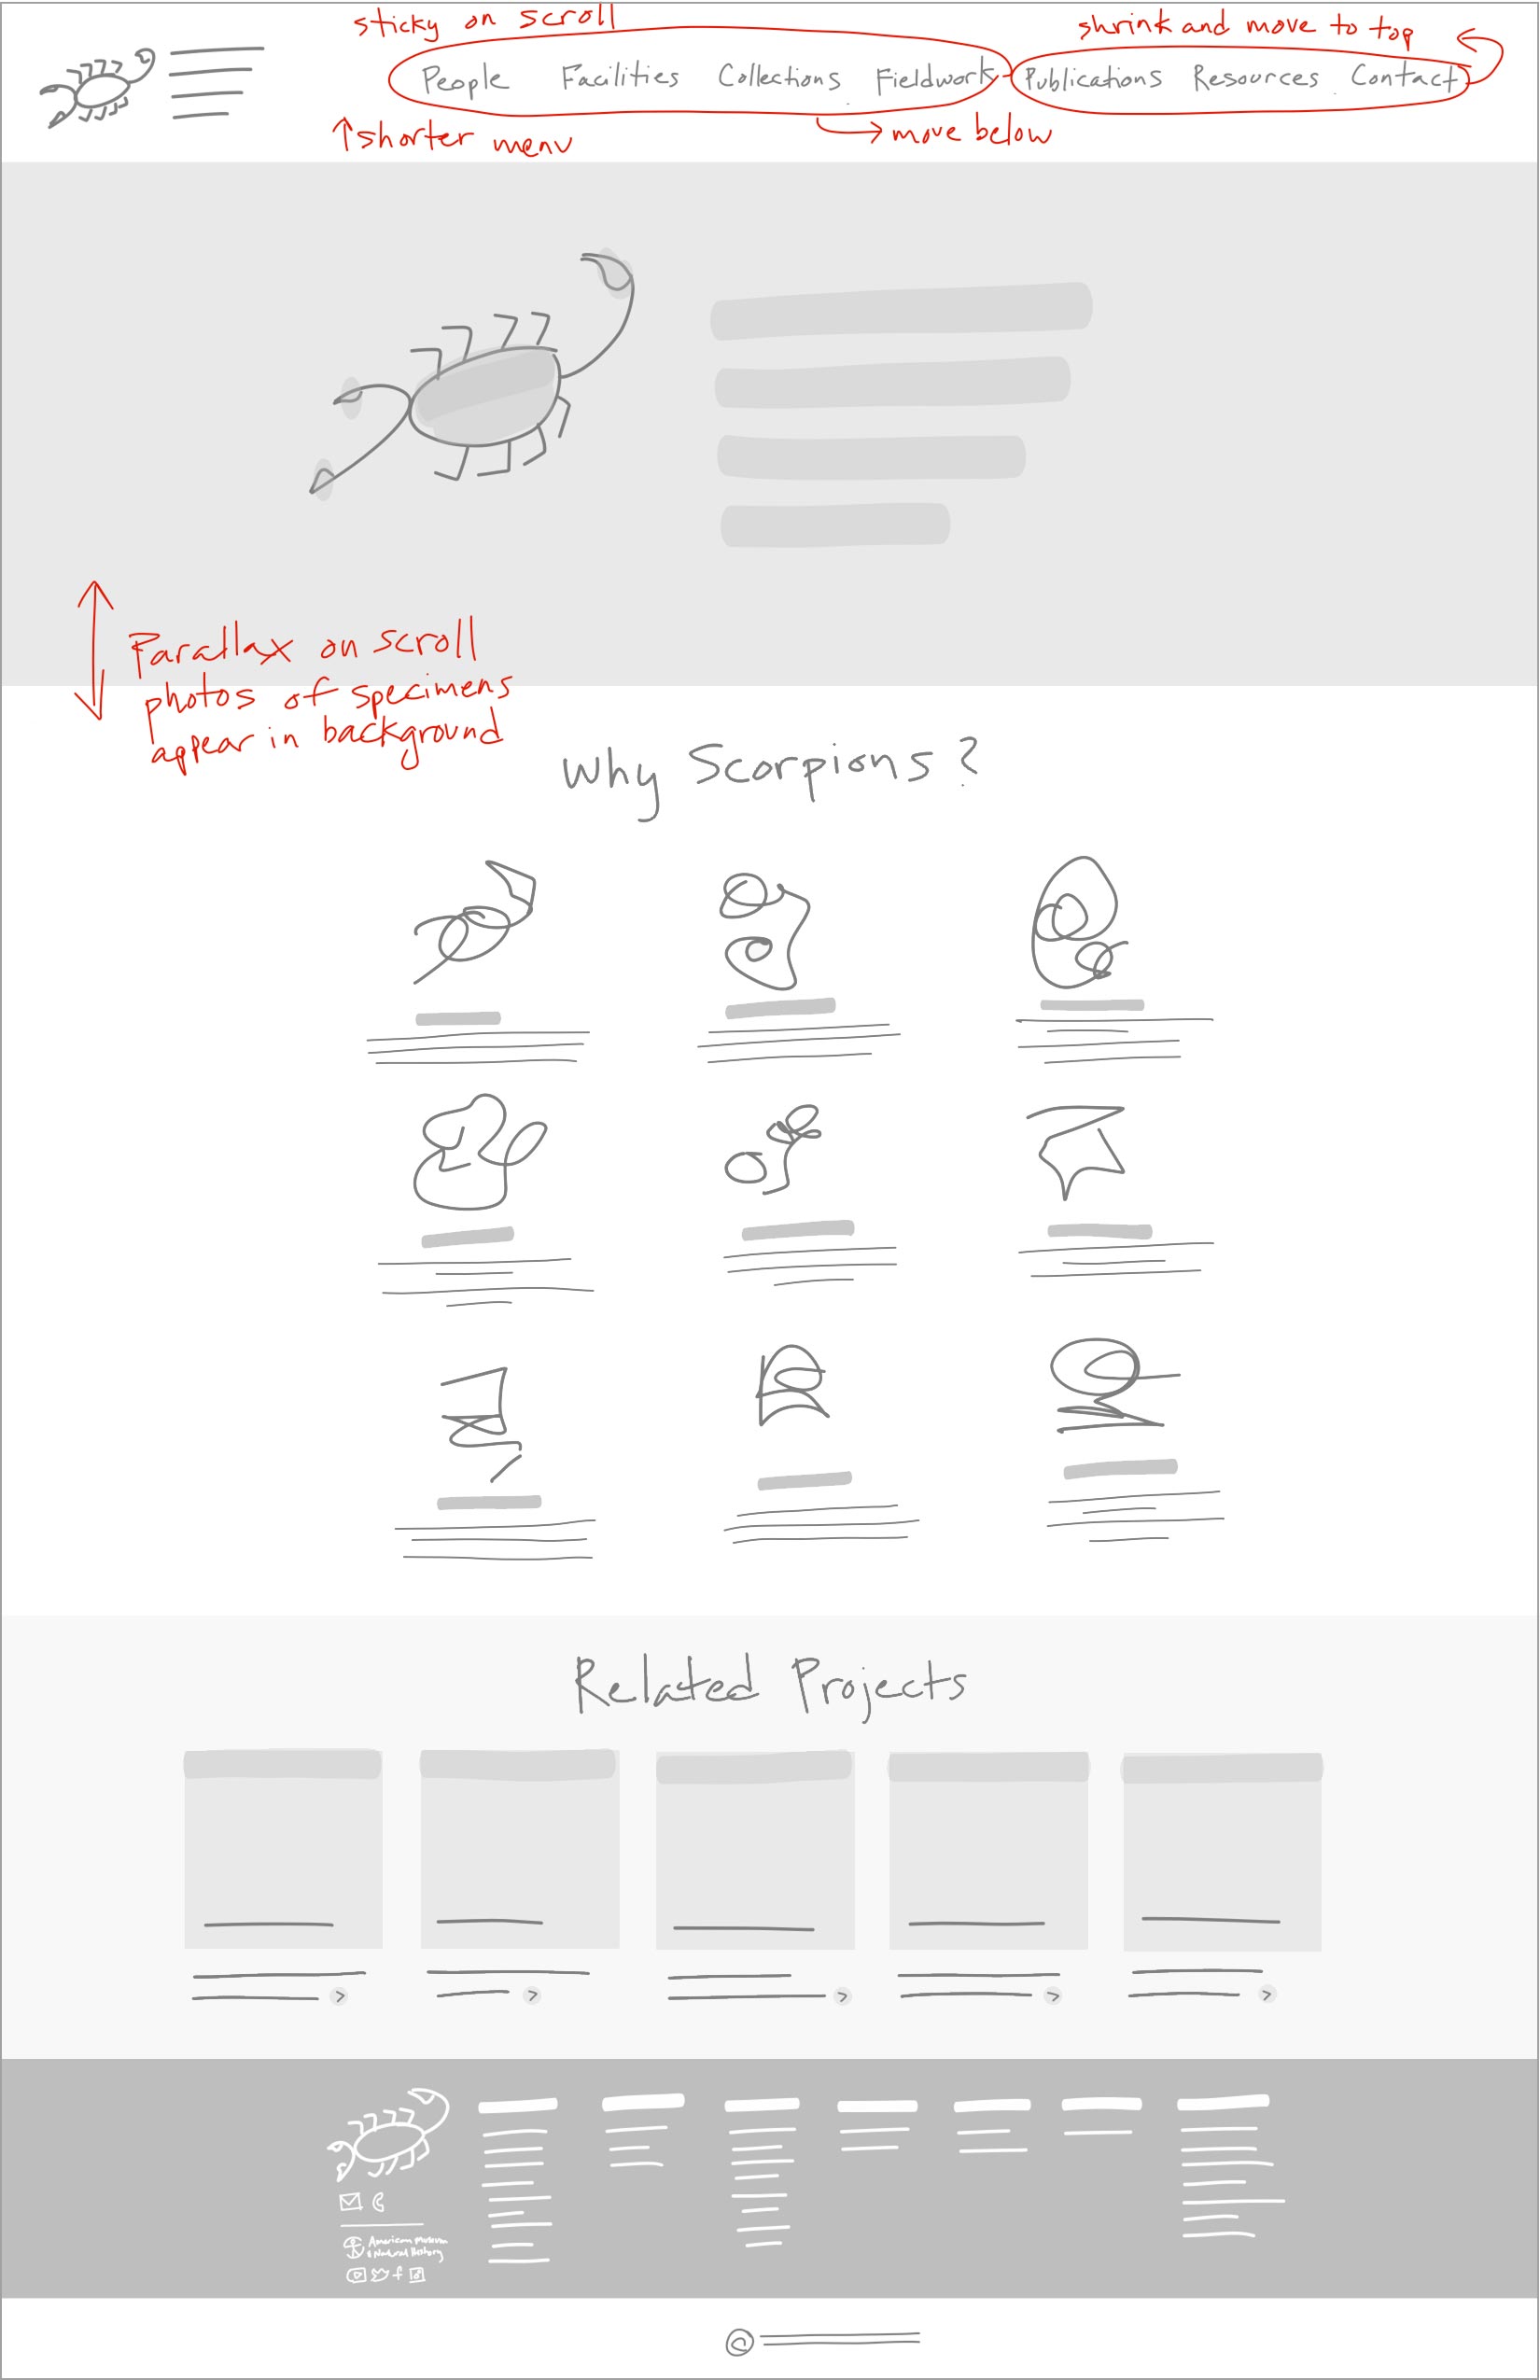 sticky on scroll
shrink and move to top
People Facilities Collections Fieldwork Publications Resources Contact
↑ shorter menu
→ move below
Parallax on scroll
photos of specimens
appear in background
Why Scorpions?
Related Projects
>
>
>
>
>
American Museum
Natural History
f
©